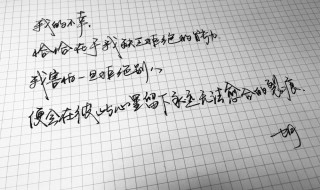 我的不幸，
恰恰在于我缺乏拒绝的能力
我害怕一旦拒绝别人
便会在彼此心里留下永远无法愈合的裂痕.